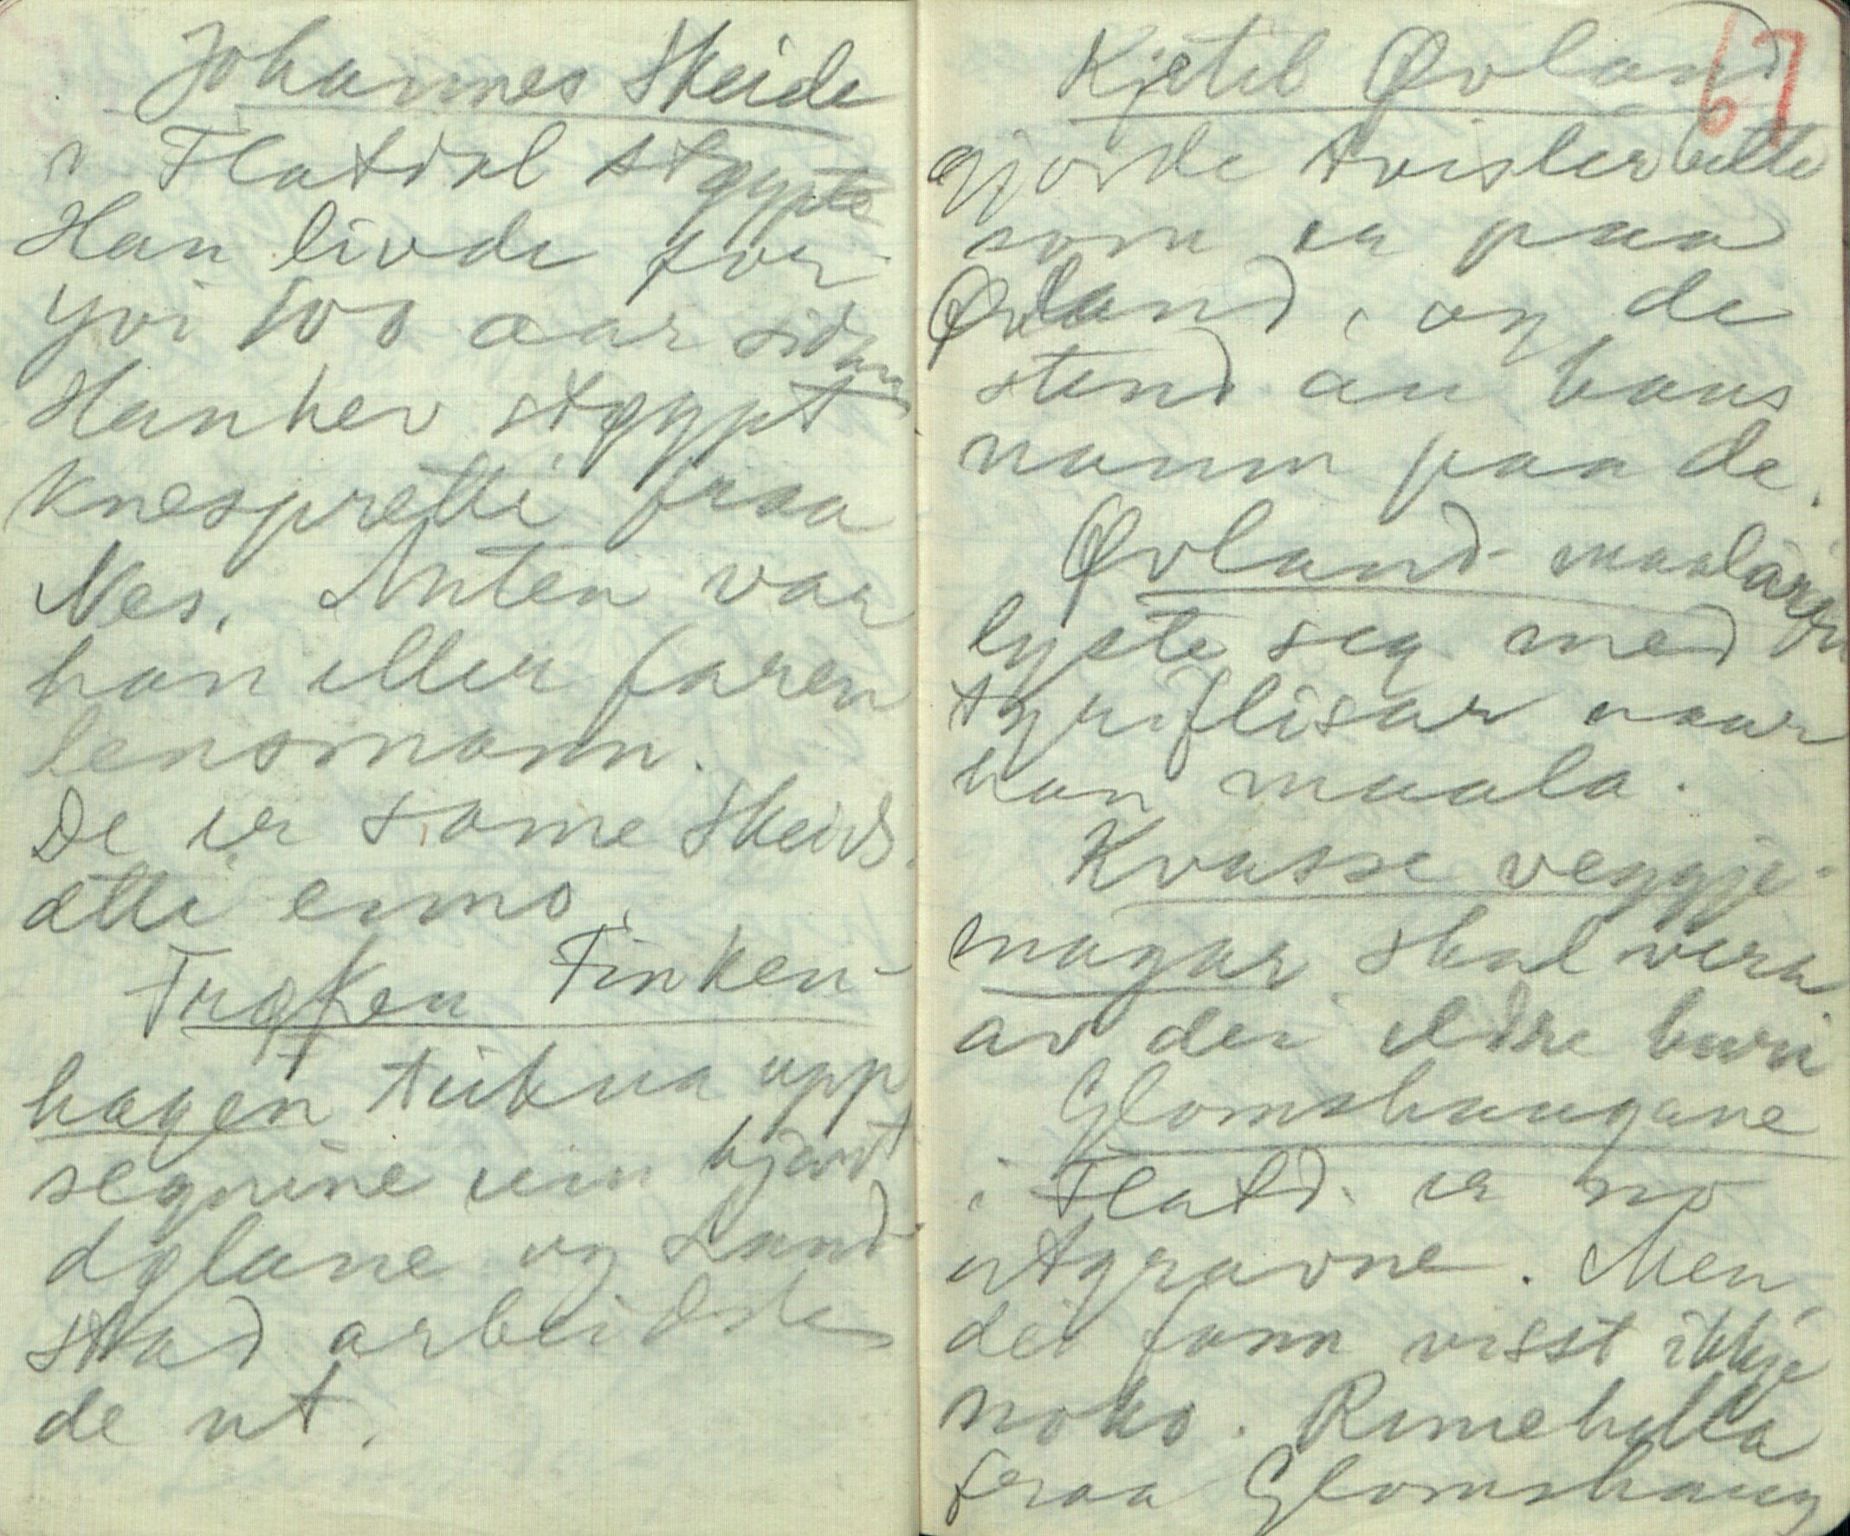 Johannes Skeide
i Flatdal støypte
Han livde for
yvi 100 aar sidan
Han hev støypt
knespretti fraa
Nes. Anten var
han eller faren
lensmann.
De er same Skeids-
ætti enno.
Frøken Finken-
hagen teikna upp
segnine um hjart
dølane og Sund
stad arbeidde
de ut.
Kjetil Øvland 67
gjorde tvislerbette
som er paa
Øvland, og de
stend au hans
namn paa de.
Øvland-maalaren
lyste seg med
tyriflisar naar
han maala.
Kvasse veggje-
magar skal vera
av dei eldre buri
Glomshaugane
i Flatd. er no
utgravne. Men
dei fann visst ikkje
noko. Rimehølla
fraa Glomshaug